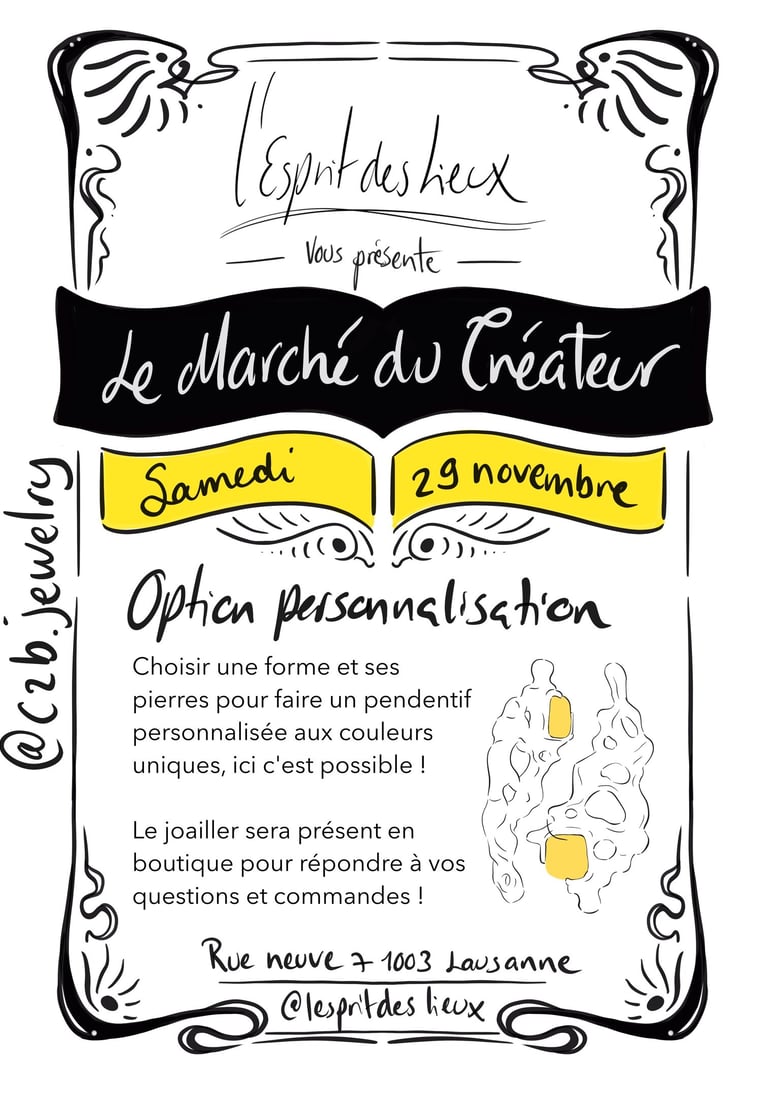 l'Esprit des Lieux
Vous présente
Le Marché du Créateur
Samedi 29 novembre
@c2b.jewelry
Option personnalisation
Choisir une forme et ses
pierres pour faire un pendentif
personnalisée aux couleurs
uniques, ici c'est possible !
Le joailler sera présent en
boutique pour répondre à vos
questions et commandes !
Rue neuve 7 1003 Lausanne
@lespritdes lieux